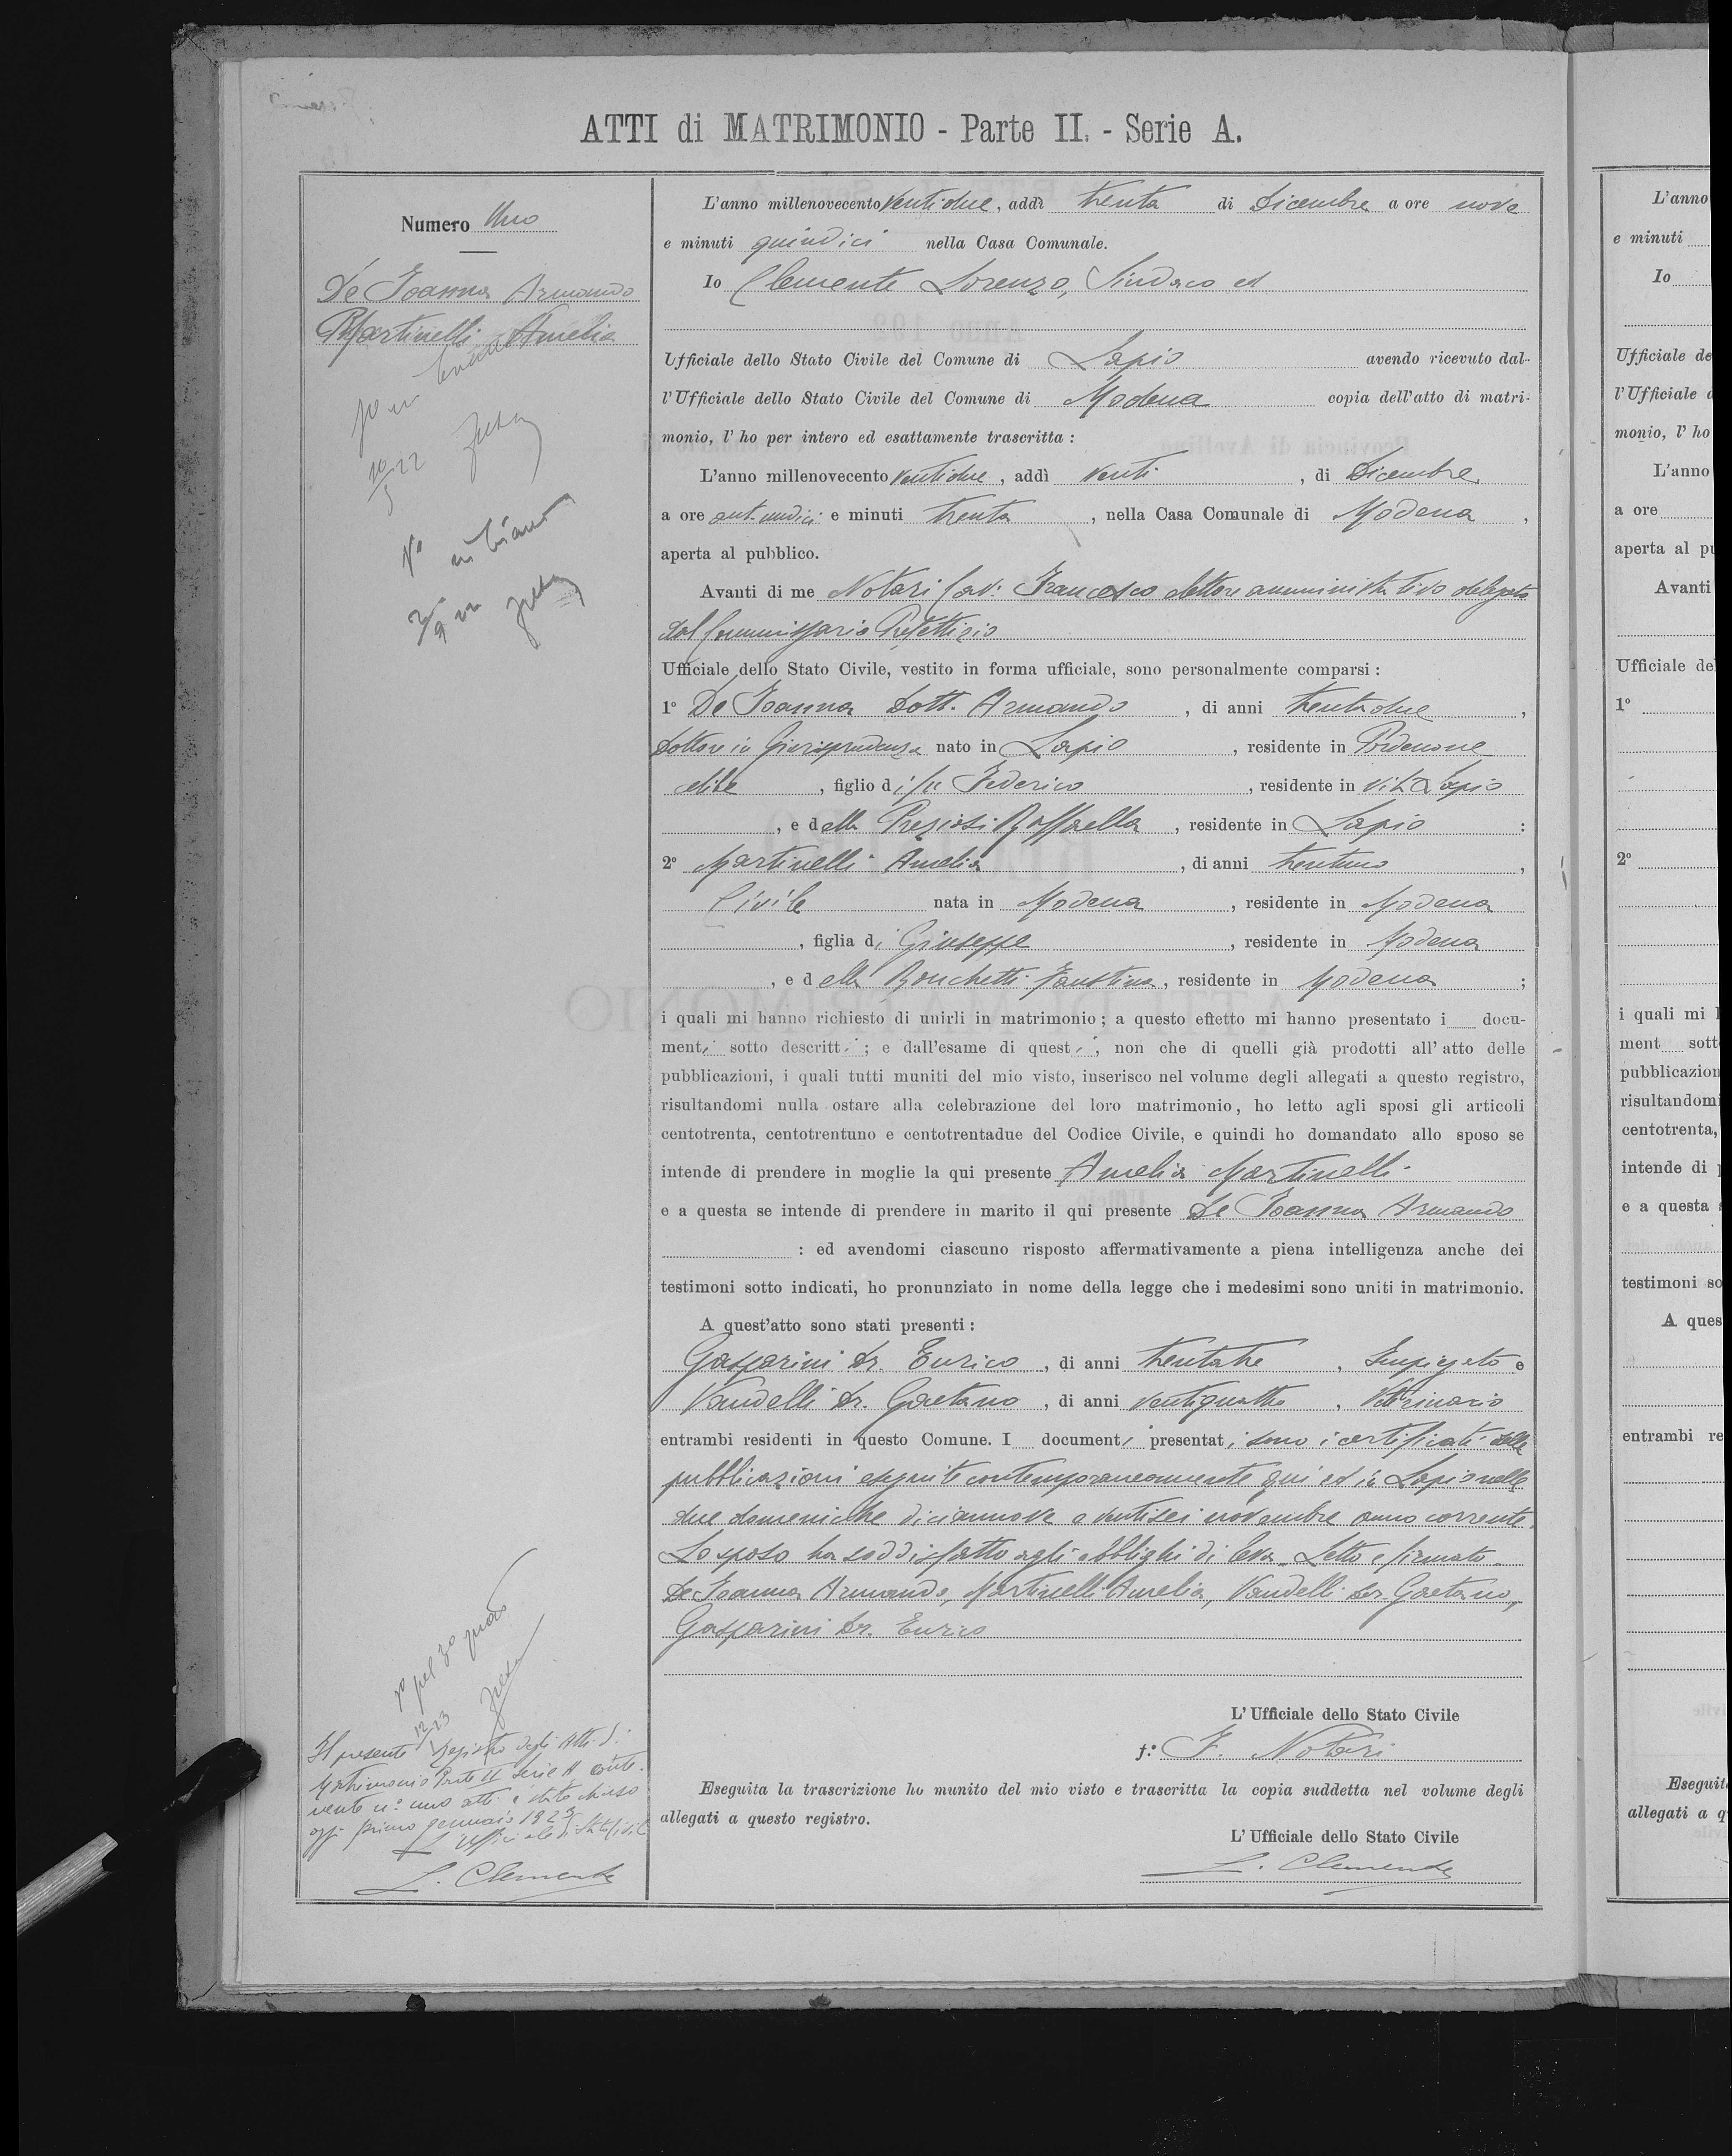 ATTI di MATRIMONIO - Parte II. - Serie A.
Numero Uno
De Ioanna Armando
Martinelli Amelia
L'anno millenovecento ventidue, addì trenta di Dicembre a ore nove
e minuti quindici nella Casa Comunale.
Io Clemente Lorenzo, Sindaco ed
Ufficiale dello Stato Civile del Comune di Lapio avendo ricevuto dal-
l'Ufficiale dello Stato Civile del Comune di Modena copia dell'atto di matri-
monio, l'ho per intero ed esattamente trascritta :
L'anno millenovecento ventidue, addì venti, di Dicembre
a ore ant. undici e minuti trenta, nella Casa Comunale di Modena,
aperta al pubblico.
Avanti di me Notari Cav: Francesco dottore amministrativo delegato
dal Commissario Prefettizio
Ufficiale dello Stato Civile, vestito in forma ufficiale, sono personalmente comparsi :
1º De Ioanna Dott. Armando, di anni trentadue,
Dottore in Giurisprudenza nato in Lapio, residente in Pordenone
celibe, figlio di fu Federico, residente in vita a Lapio
, e della Preziosi Raffaella, residente in Lapio :
2º Martinelli Amelia, di anni trentuno,
Civile nata in Modena, residente in Modena
, figlia di Giuseppe, residente in Modena
, e della Ronchetti Faustina, residente in Modena ;
i quali mi hanno richiesto di unirli in matrimonio ; a questo effetto mi hanno presentato i docu-
menti sotto descritti ; e dall'esame di questi, non che di quelli già prodotti all'atto delle
pubblicazioni, i quali tutti muniti del mio visto, inserisco nel volume degli allegati a questo registro,
risultandomi nulla ostare alla celebrazione del loro matrimonio, ho letto agli sposi gli articoli
centotrenta, centotrentuno e centotrentadue del Codice Civile, e quindi ho domandato allo sposo se
intende di prendere in moglie la qui presente Amelia Martinelli
e a questa se intende di prendere in marito il qui presente De Ioanna Armando
: ed avendomi ciascuno risposto affermativamente a piena intelligenza anche dei
testimoni sotto indicati, ho pronunziato in nome della legge che i medesimi sono uniti in matrimonio.
A quest'atto sono stati presenti :
Gasparini Dr. Enrico, di anni trentatre, Impiegato e
Vandelli Dr. Gaetano, di anni ventiquattro, Veterinario
entrambi residenti in questo Comune. I documenti presentati sono i certificati delle
pubblicazioni eseguite contemporaneamente qui ed in Lapio nelle
due domeniche diciannove e ventisei novembre anno corrente.
Lo sposo ha soddisfatto agli obblighi di leva. Letto e firmato.
De Ioanna Armando, Martinelli Amelia, Vandelli Dr. Gaetano,
Gasparini Dr. Enrico
L'Ufficiale dello Stato Civile
f.º F. Notari
Eseguita la trascrizione ho munito del mio visto e trascritta la copia suddetta nel volume degli
allegati a questo registro.
L'Ufficiale dello Stato Civile
L. Clemente
Il presente Registro degli Atti di
Matrimonio Parte II Serie A conte-
nente n.º uno atti è stato chiuso
oggi primo gennaio 1923
L'Ufficiale di Stato Civile
L. Clemente
L'anno
e minuti
Io
Ufficiale de
l'Ufficiale
monio, l'ho
L'anno
a ore
aperta al pu
Avanti
Ufficiale de
1º
2º
i quali mi
ment sott
pubblicazion
risultandomi
centotrenta,
intende di
e a questa
testimoni so
A ques
entrambi re
Eseguit
allegati a q